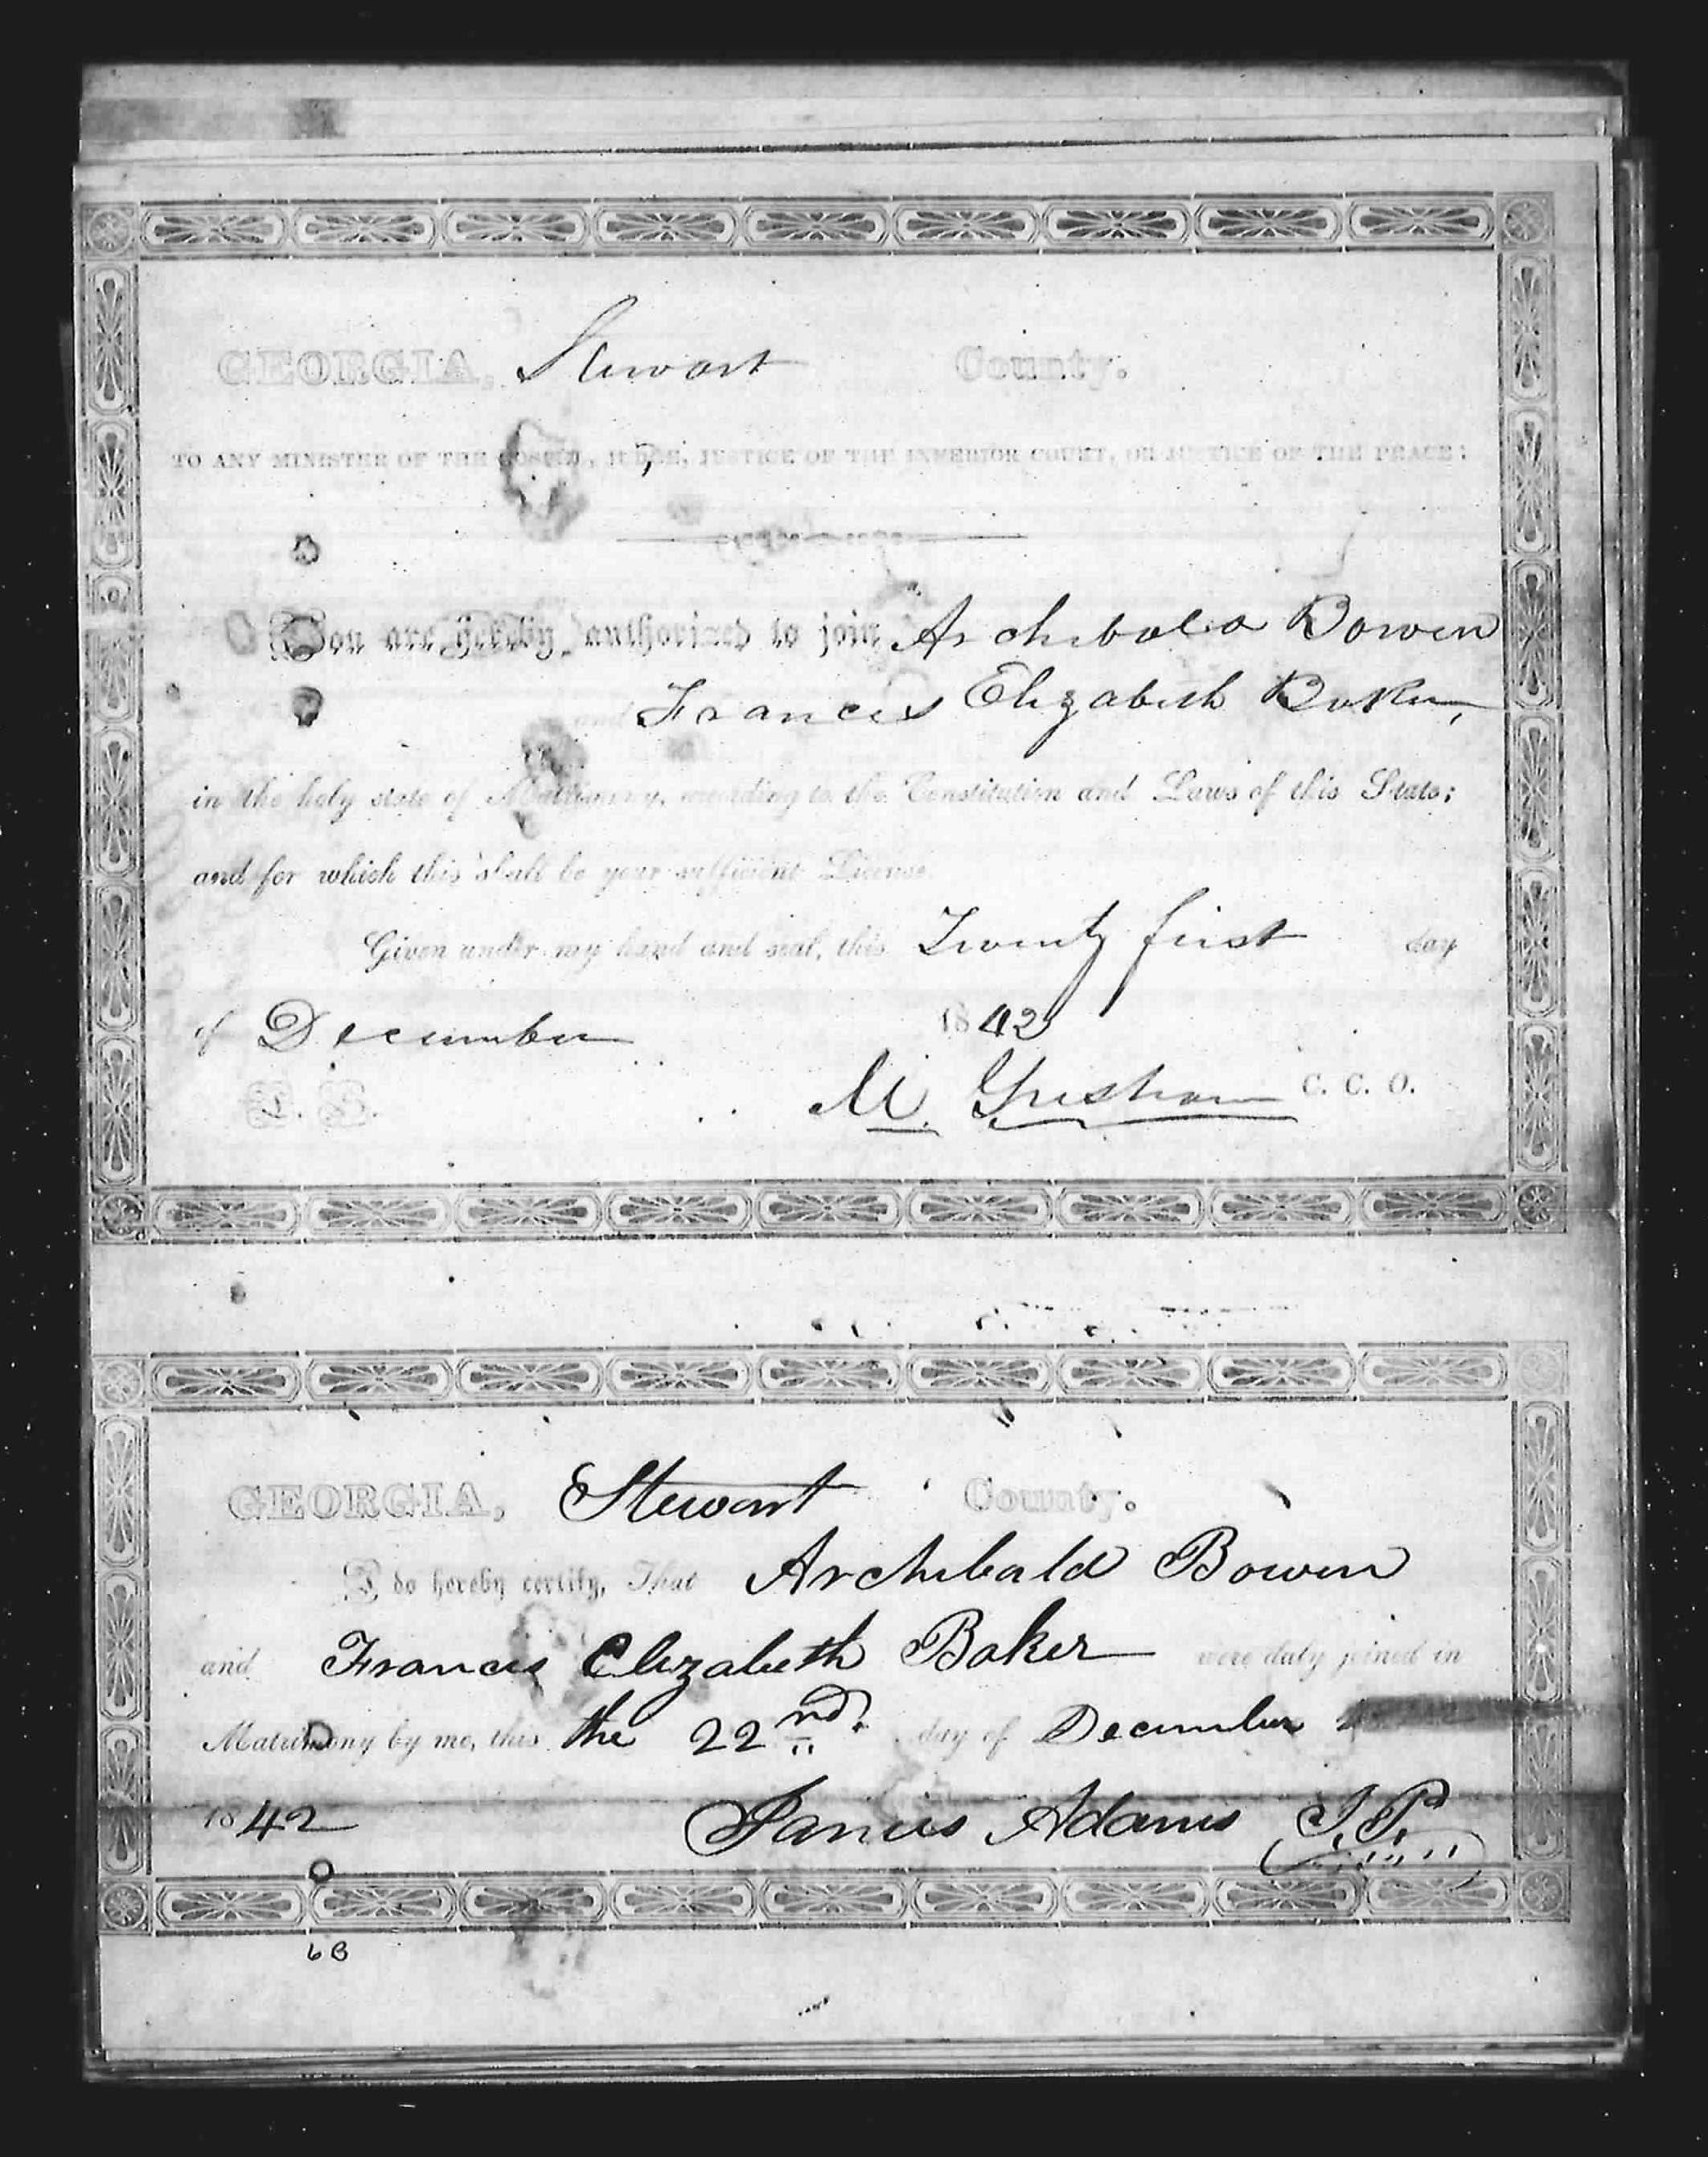 GEORGIA, Stewart County.
TO ANY MINISTER OF THE GOSPEL, JUDGE, JUSTICE OF THE INFERIOR COURT, OR JUSTICE OF THE PEACE:
You are hereby authorized to join Archibald Bowen
and Francis Elizabeth Baker,
in the holy state of Matrimony, according to the Constitution and Laws of this State;
and for which this shall be your sufficient License.
Given under my hand and seal, this Twenty first day
of December 1842
L. S. M. Gresham C. C. O.
GEORGIA, Stewart County.
I do hereby certify, That Archibald Bowen
and Francis Elizabeth Baker were duly joined in
Matrimony by me, this the 22nd. day of December
1842 James Adams J.P.